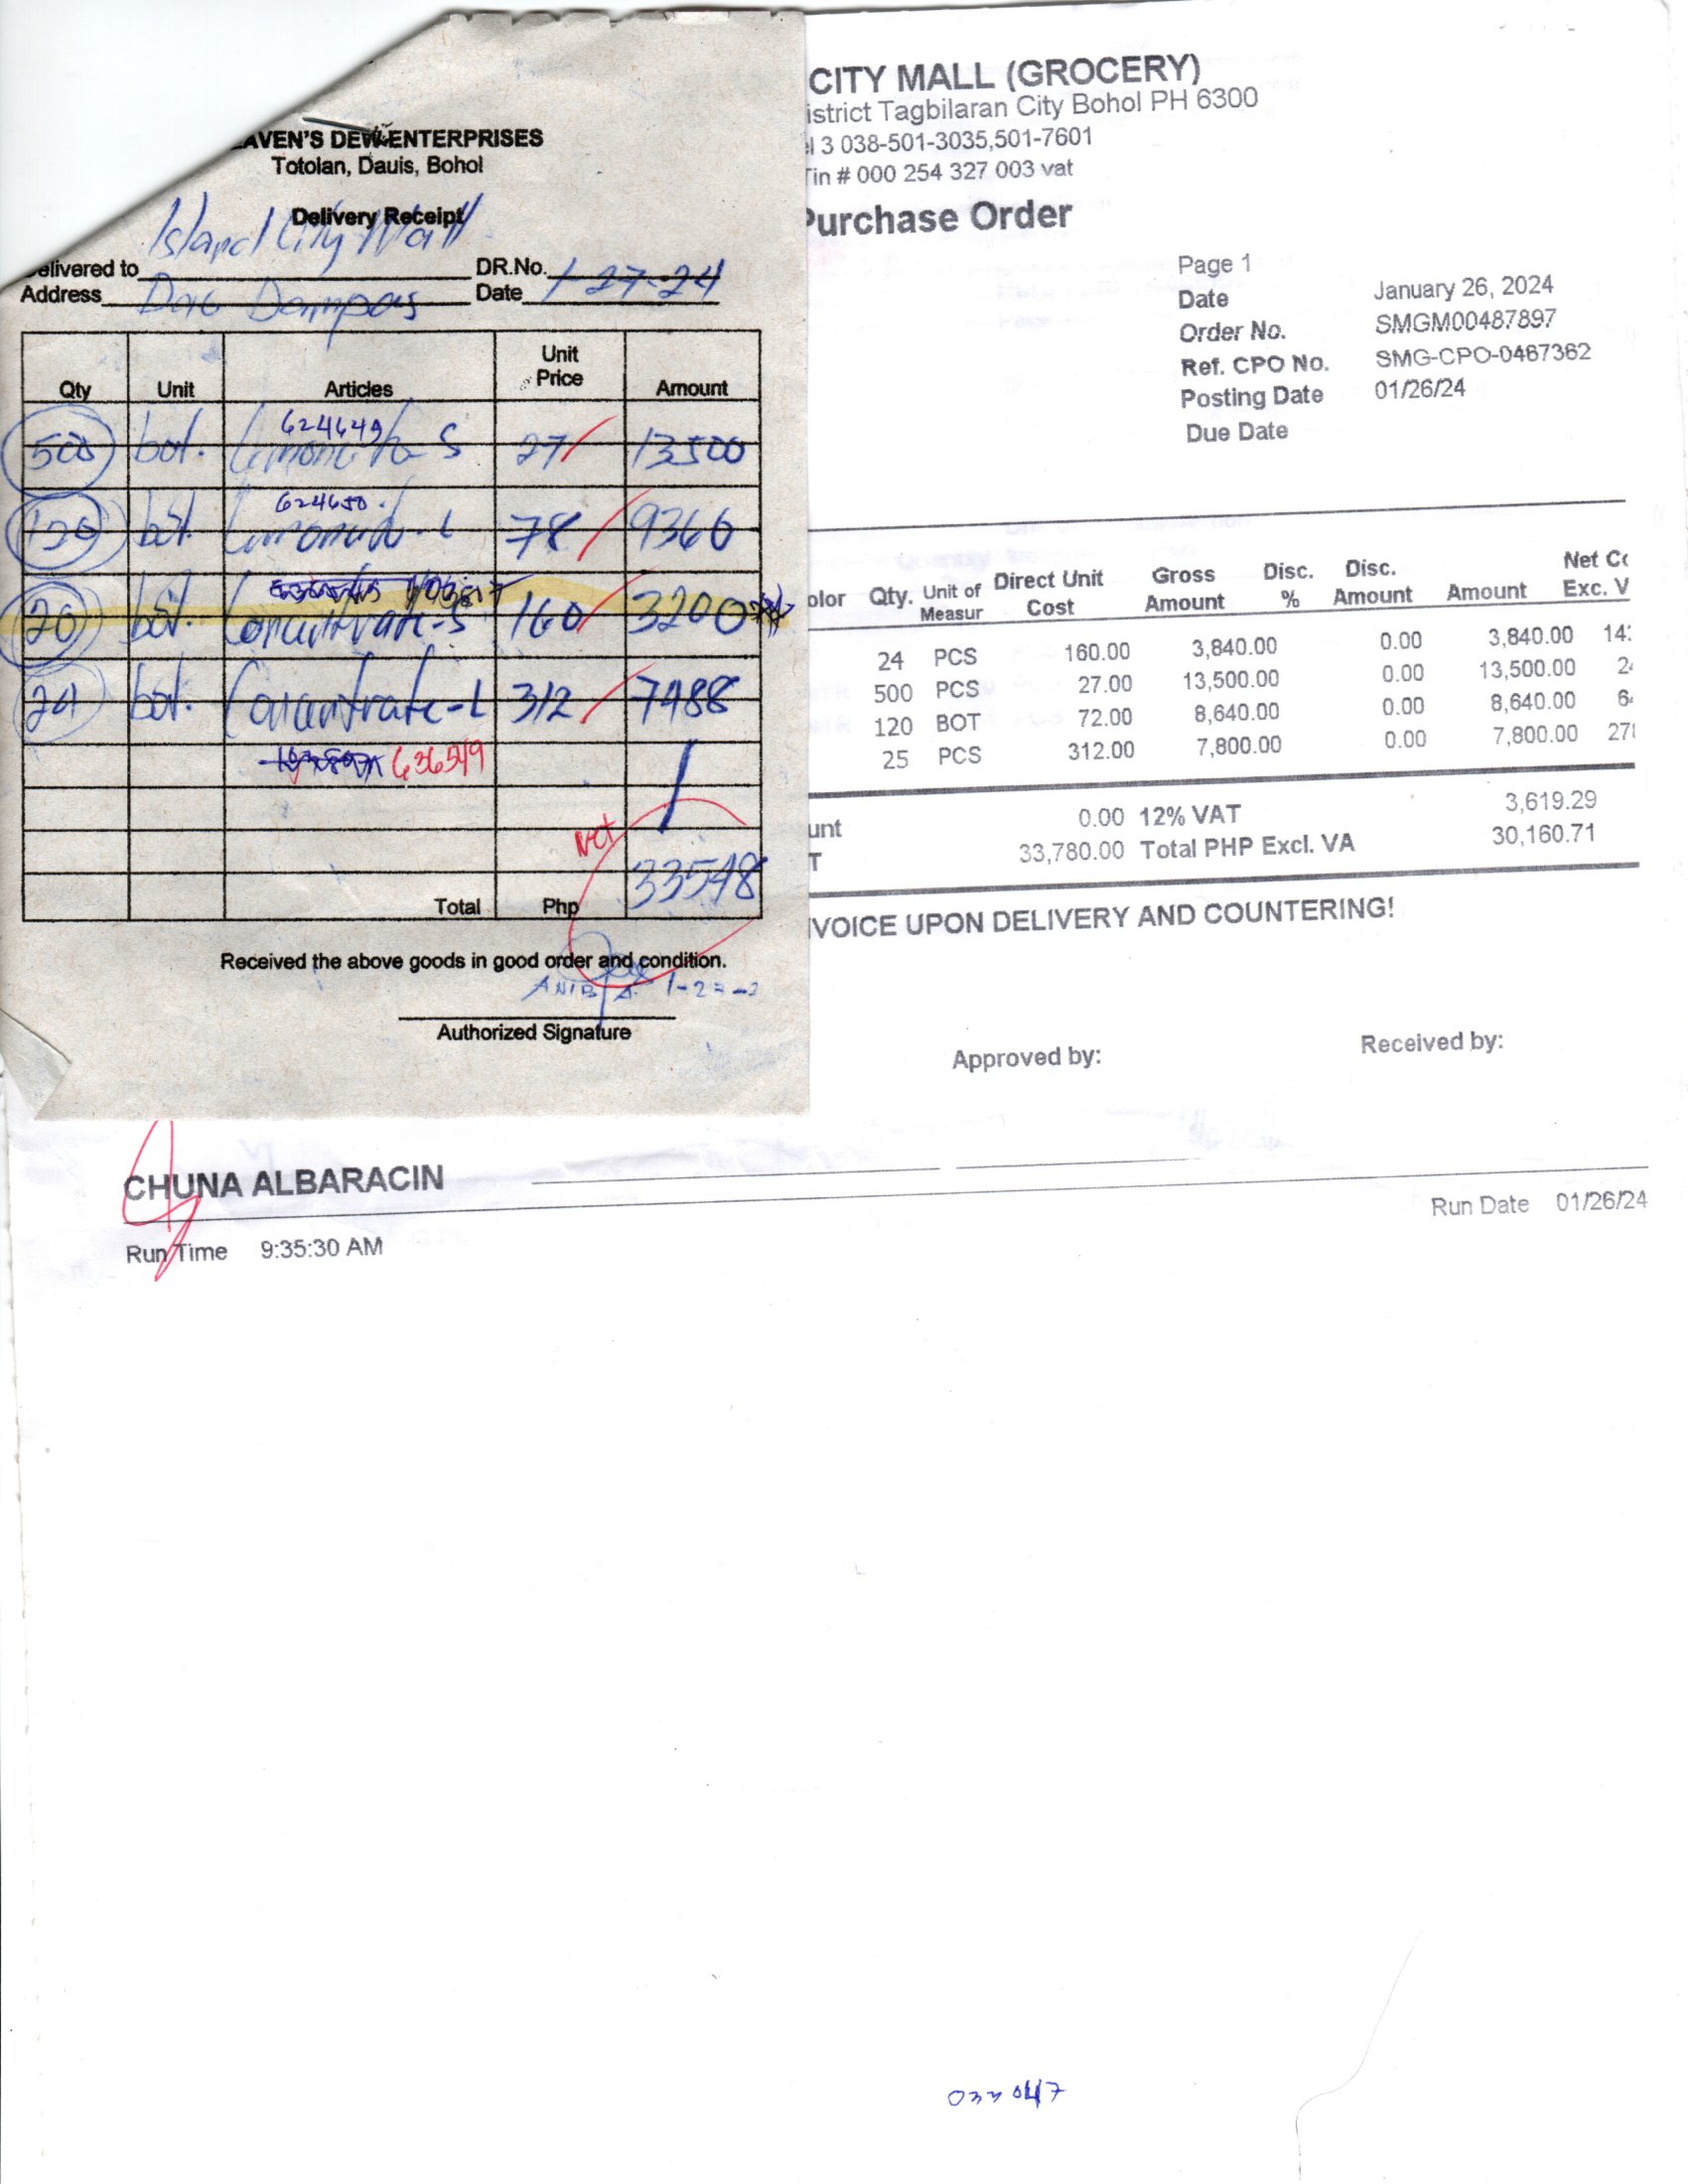 AVEN'S DEW ENTERPRISES
Totolan, Dauis, Bohol
Delivery Receipt
elivered to Island City Mall DR.No.
Address Dao Dampas Date 1-27-24
Qty Unit Articles Unit Price Amount
624649
500 bot. Limoncito-S 27 13500
624650
120 bot. L 78 9360
20 bot. Concentrate-S 160 3200
24 bot. Concentrate-L 312 7488
636549
Net
33548
Total Php
Received the above goods in good order and condition.
Authorized Signature
CITY MALL (GROCERY)
istrict Tagbilaran City Bohol PH 6300
el 3 038-501-3035,501-7601
Tin # 000 254 327 003 vat
Purchase Order
Page 1
Date January 26, 2024
Order No. SMGM00487897
Ref. CPO No. SMG-CPO-0467362
Posting Date 01/26/24
Due Date
olor Qty. Unit of Measur Direct Unit Cost Gross Amount Disc. % Disc. Amount Amount Net Co Exc. V
24 PCS 160.00 3,840.00 0.00 3,840.00 14
500 PCS 27.00 13,500.00 0.00 13,500.00 2
120 BOT 72.00 8,640.00 0.00 8,640.00 6
25 PCS 312.00 7,800.00 0.00 7,800.00 27
unt 0.00 12% VAT 3,619.29
T 33,780.00 Total PHP Excl. VA 30,160.71
VOICE UPON DELIVERY AND COUNTERING!
Approved by: Received by:
CHUNA ALBARACIN
Run Date 01/26/24
Run Time 9:35:30 AM